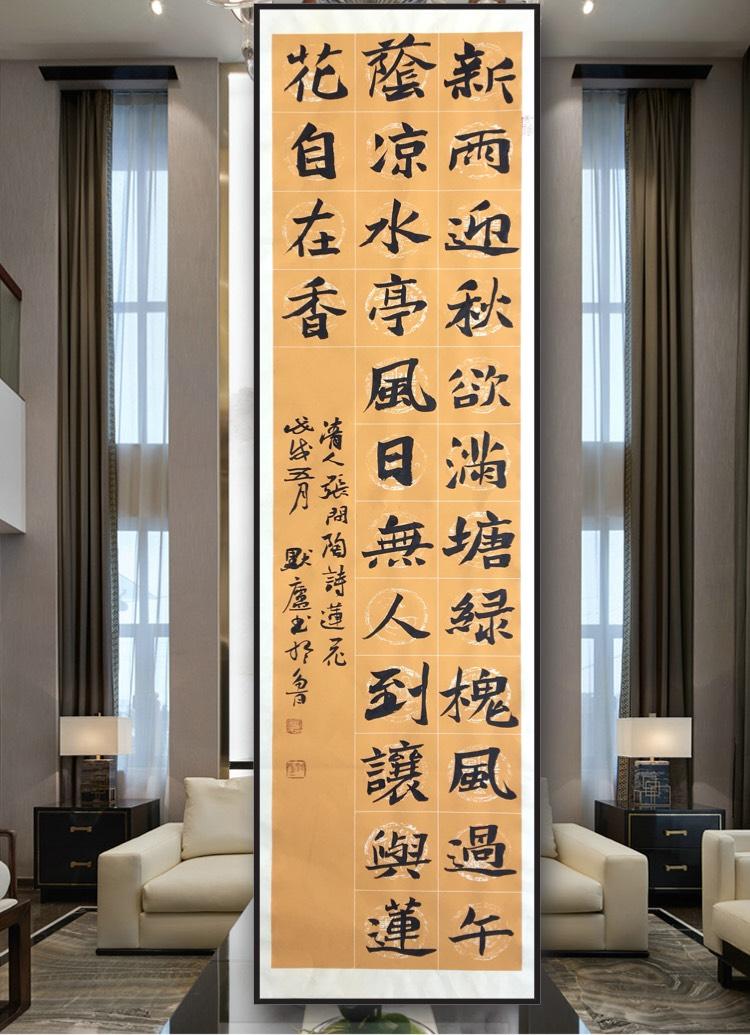 新雨迎秋欲滿塘綠槐風過午
蔭凉水亭風日無人到讓與蓮
花自在香
清人張問陶詩蓮花
戊戌五月 默廬书於魯